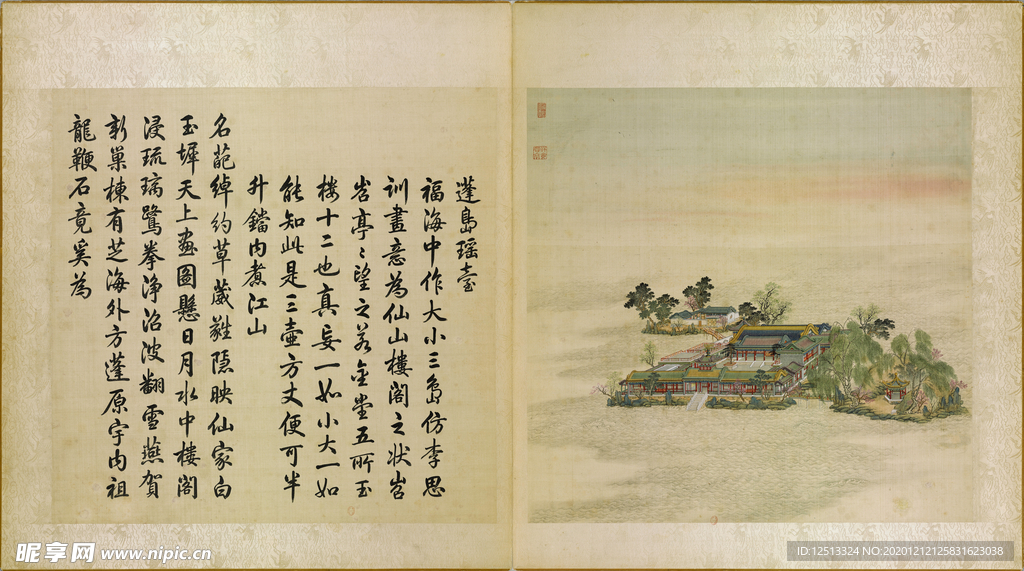 蓬島瑤臺
福海中作大小三島仿李思
訓畫意為仙山樓閣之狀岧
岧亭亭望之若金堂五所玉
樓十二也真妄一如小大一如
能知此是三壺方丈便可半
升鐺內煮江山
名葩綽約草葳蕤隱映仙家白
玉墀天上畫圖懸日月水中樓閣
浸琉璃鷺拳淨沼波翻雪燕賀
新巢棟有芝海外方蓬原宇內祖
龍鞭石竟奚為
昵享网 www.nipic.cn
ID:12513324 NO:20201212125831623038